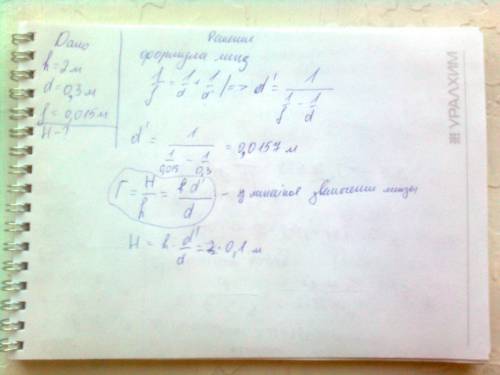 Дано
h = 2 м
d = 0,3 м
f = 0,015 м
H - ?
Решение
формула линз
1/f = 1/d + 1/d' | => d' = 1/(1/f - 1/d)
d' = 1/(1/0,015 - 1/0,3) = 0,0157 м
Г = H/h = d'/d - увеличение линзы
H = h · d'/d = 0,1 м
УРАЛХИМ